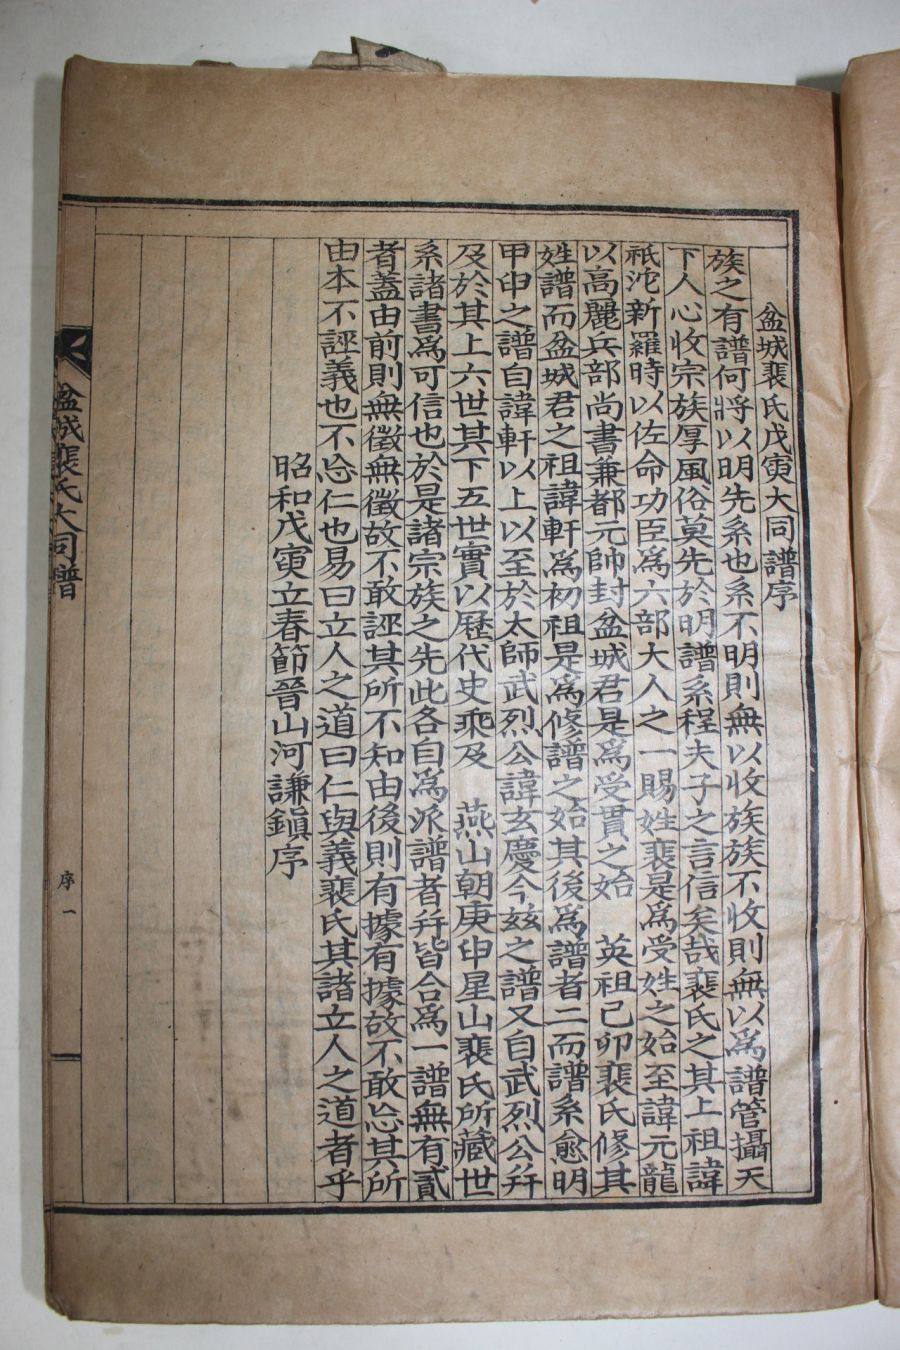 盆城裵氏戊寅大同譜序
族之有譜何將以明先系也系不明則無以收族族不收則無以爲譜管攝天
下人心收宗族厚風俗莫先於明譜系程夫子之言信矣哉裵氏之其上祖諱
祇沱新羅時以佐命功臣爲六部大人之一賜姓裵是爲受姓之始至諱元龍
以高麗兵部尚書兼都元帥封盆城君是爲受貫之始 英祖己卯裵氏修其
姓譜而盆城君之祖諱軒爲初祖是爲修譜之始其後爲譜者二而譜系愈明
甲申之譜自諱軒以上以至於太師武烈公諱玄慶今玆之譜又自武烈公幷
及於其上六世其下五世實以歷代史乘及 燕山朝庚申星山裵氏所藏世
系諸書爲可信也於是諸宗族之先此各自爲派譜者幷皆合爲一譜無有貳
者蓋由前則無徵無徵故不敢誣其所不知由後則有據有據故不敢忘其所
由本不誣義也不忘仁也易曰立人之道曰仁與義裵氏其諸立人之道者乎
昭和戊寅立春節晉山河謙鎭序
盆城裵氏大同譜
序 一